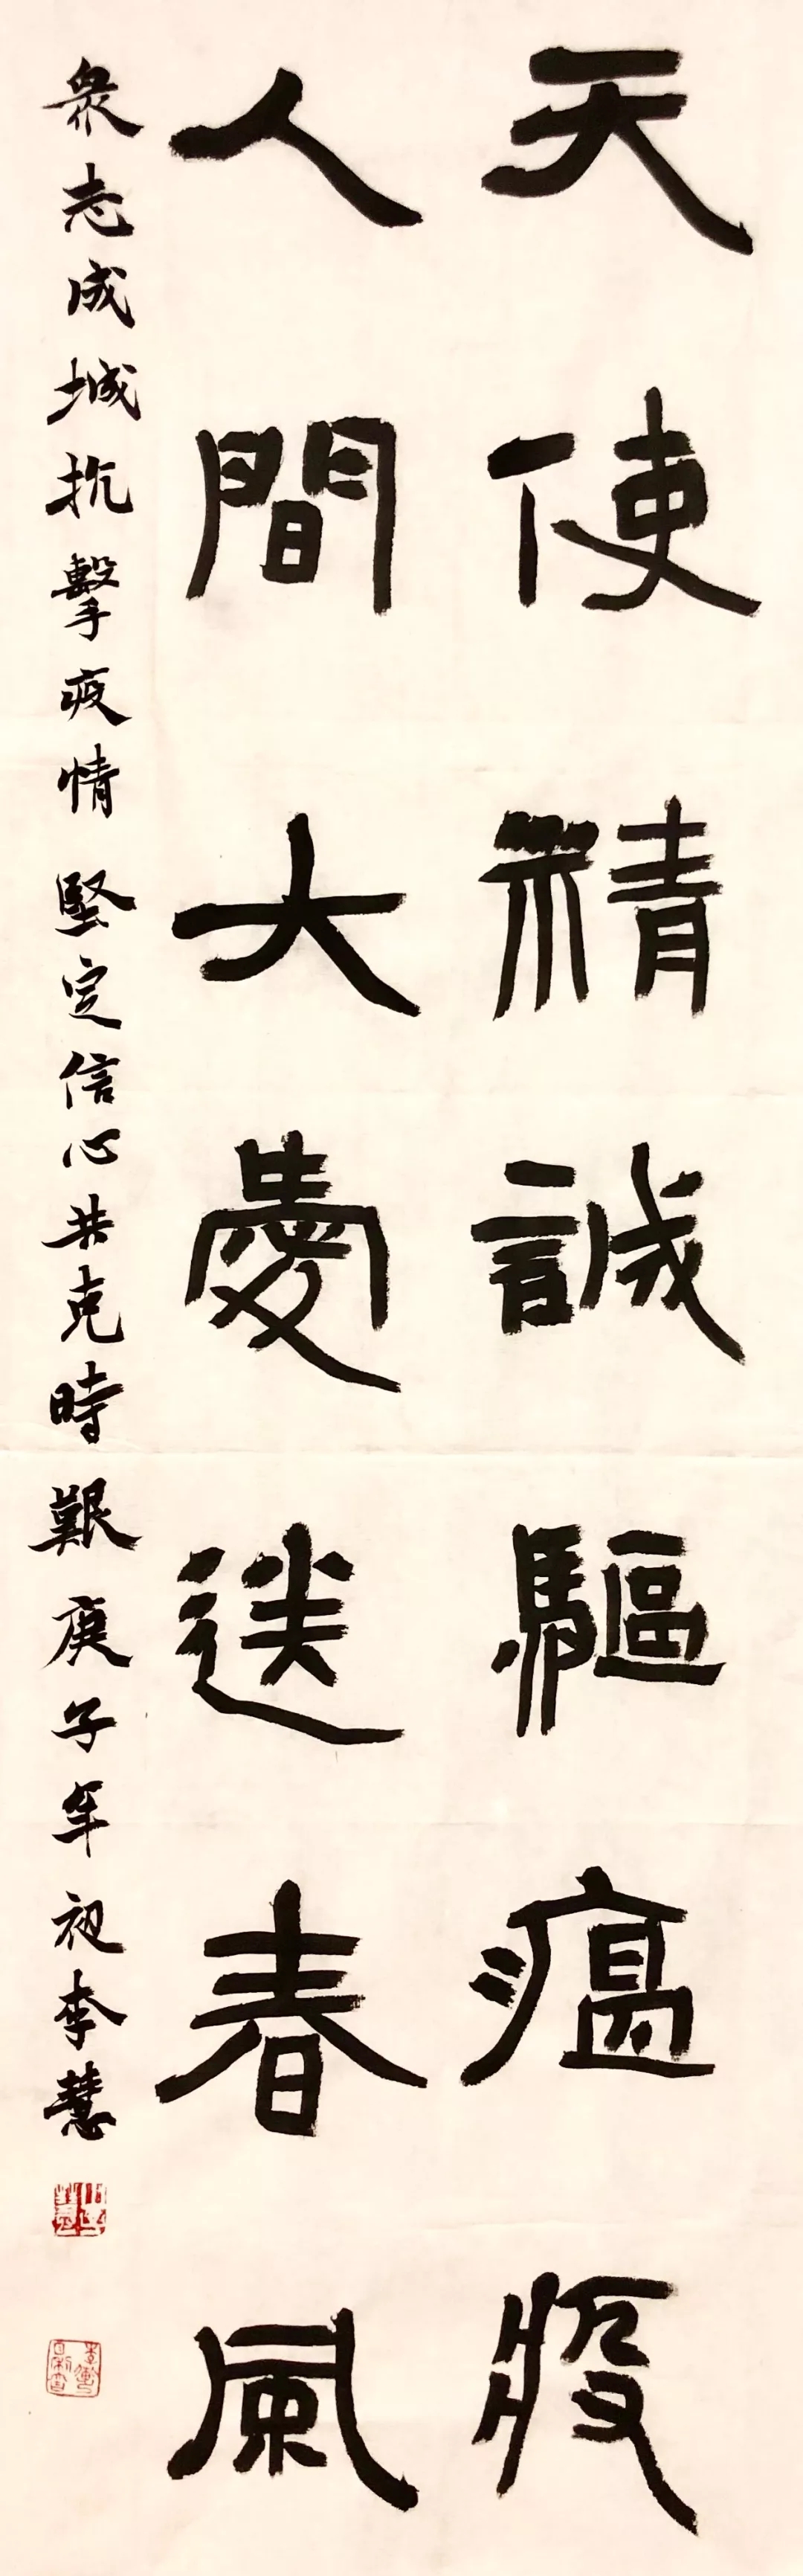 天使精誠驅瘟疫
人間大愛送春風
衆志成城抗擊疫情堅定信心共克時艱庚子年初李慧